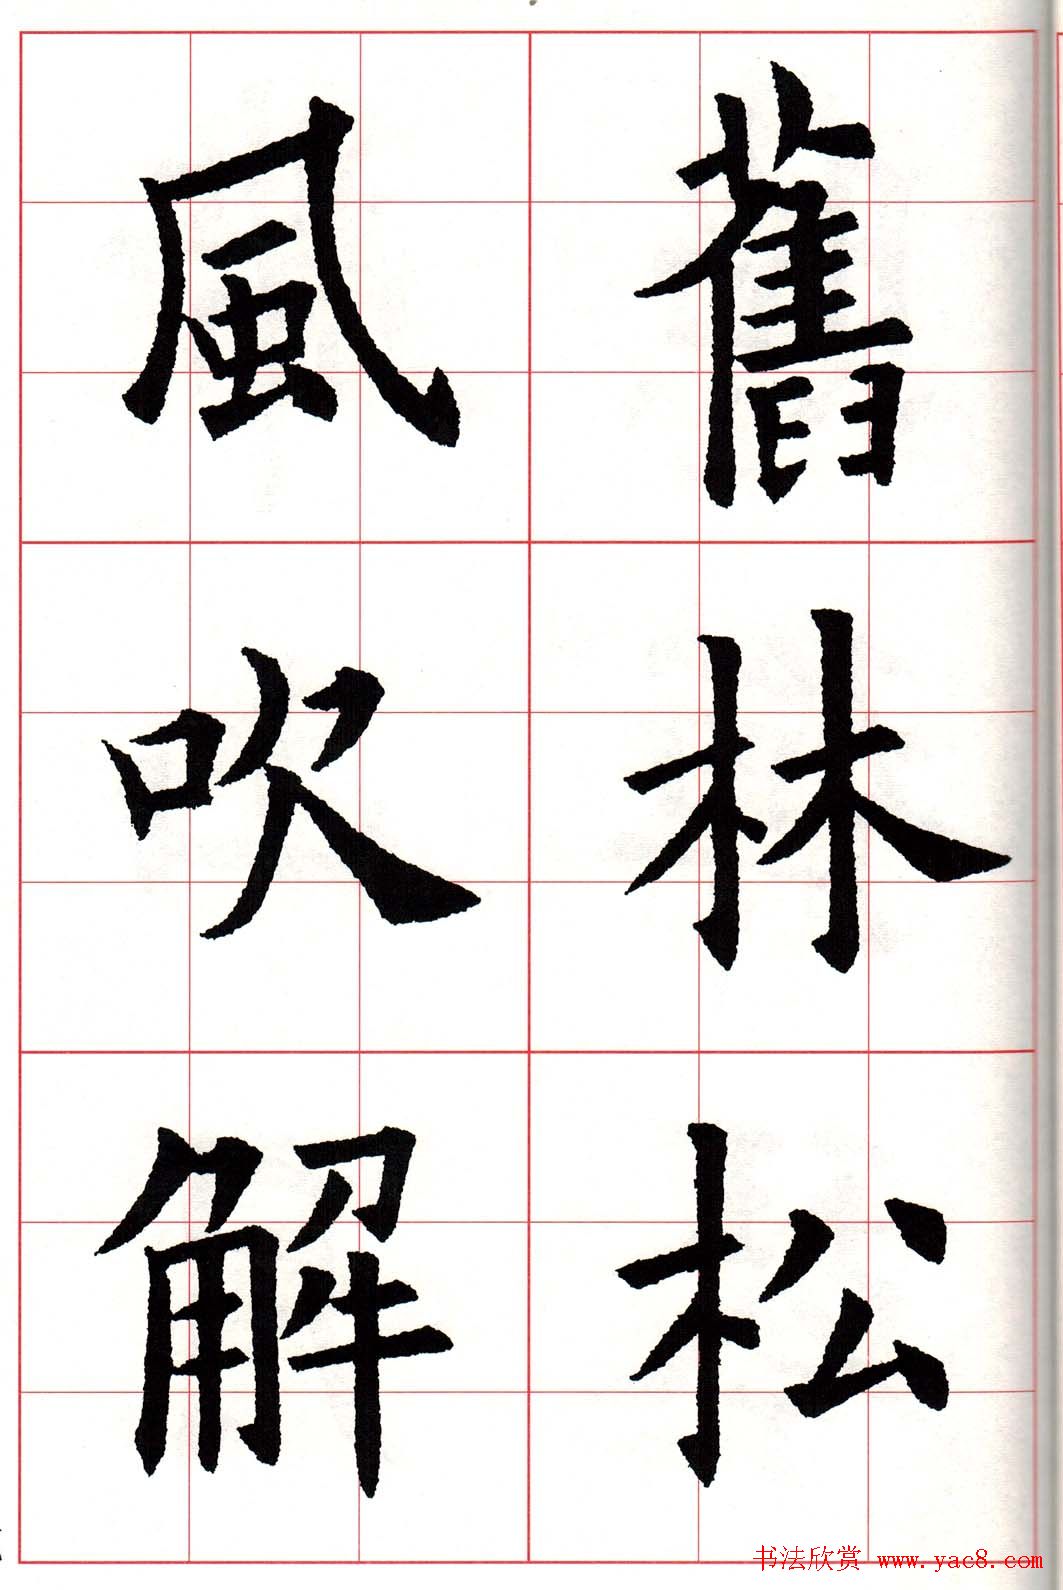 舊林松
風吹解
书法欣赏 www.yac8.com